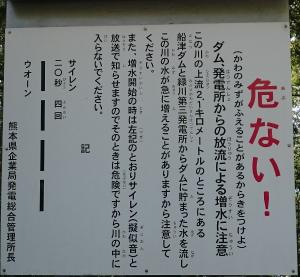 危ない！
（かわのみずがふえることがあるからきをつけよ）
ダム、発電所からの放流による増水に注意
この川の上流2・1キロメートルのところにある
船津ダムと緑川第三発電所からダムに貯まった水を流し
この川の水が急に増えることがありますから注意して
ください。
また、増水開始の時は左記のとおりサイレン（擬似音）と
放送で知らせますのでそのときは危険ですから川の中に
入らないでください。
記
サイレン
二〇秒 四回
ウオーン
熊本県企業局発電総合管理所長